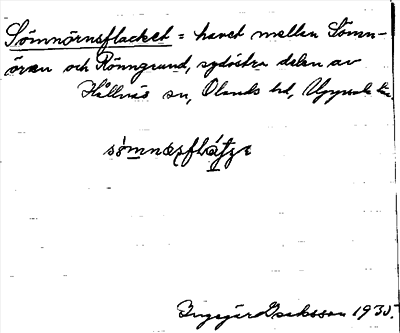 Sömnörnsflacket = havet mellan Sömn-
ören och Rönngrund, sydöstra delen av
Hållnäs sn, Olands hd, Uppsala län.
Ingegerd Isaksson 1935.